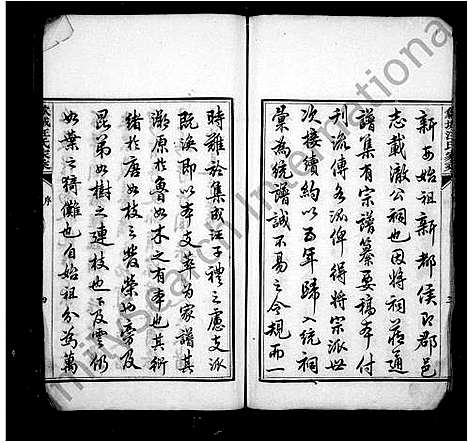 新安始祖新都侯即郡邑
志載澈公祠也因將祠藏通
譜集有宗譜纂要稿本付
刊流傳各派俾得將宗派世
次接續約以五年歸入統祠
彙為統譜誠不易之令規而一
時難於集成汪子禮之慮支派
既渙即以本支萃為家譜其
溯原於魯如木之有本也其衍
緒於唐如枝之發榮也旁及
昆弟如樹之連枝也下及雲仍
如葉之猗儺也自始祖分為萬
汪氏家乘
序
MySearch International